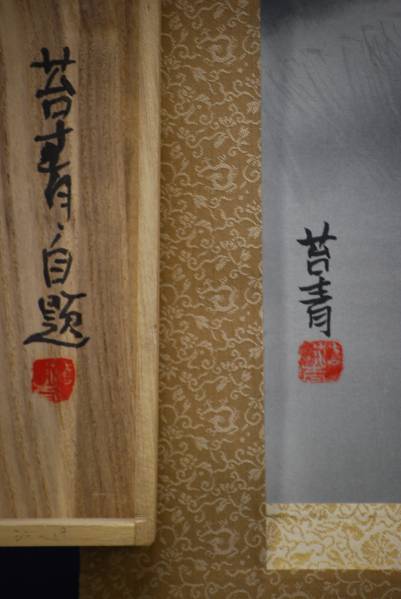 苔青自題
苔青